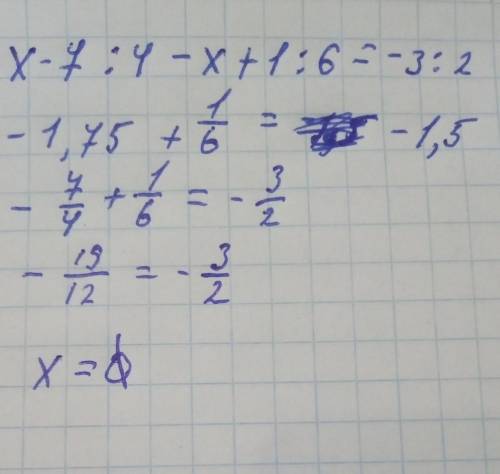 x - 7 : 4 - x + 1 : 6 = -3 : 2
- 1,75 + 1/6 = - 1,5
- 7/4 + 1/6 = - 3/2
- 19/12 = - 3/2
x = ϕ